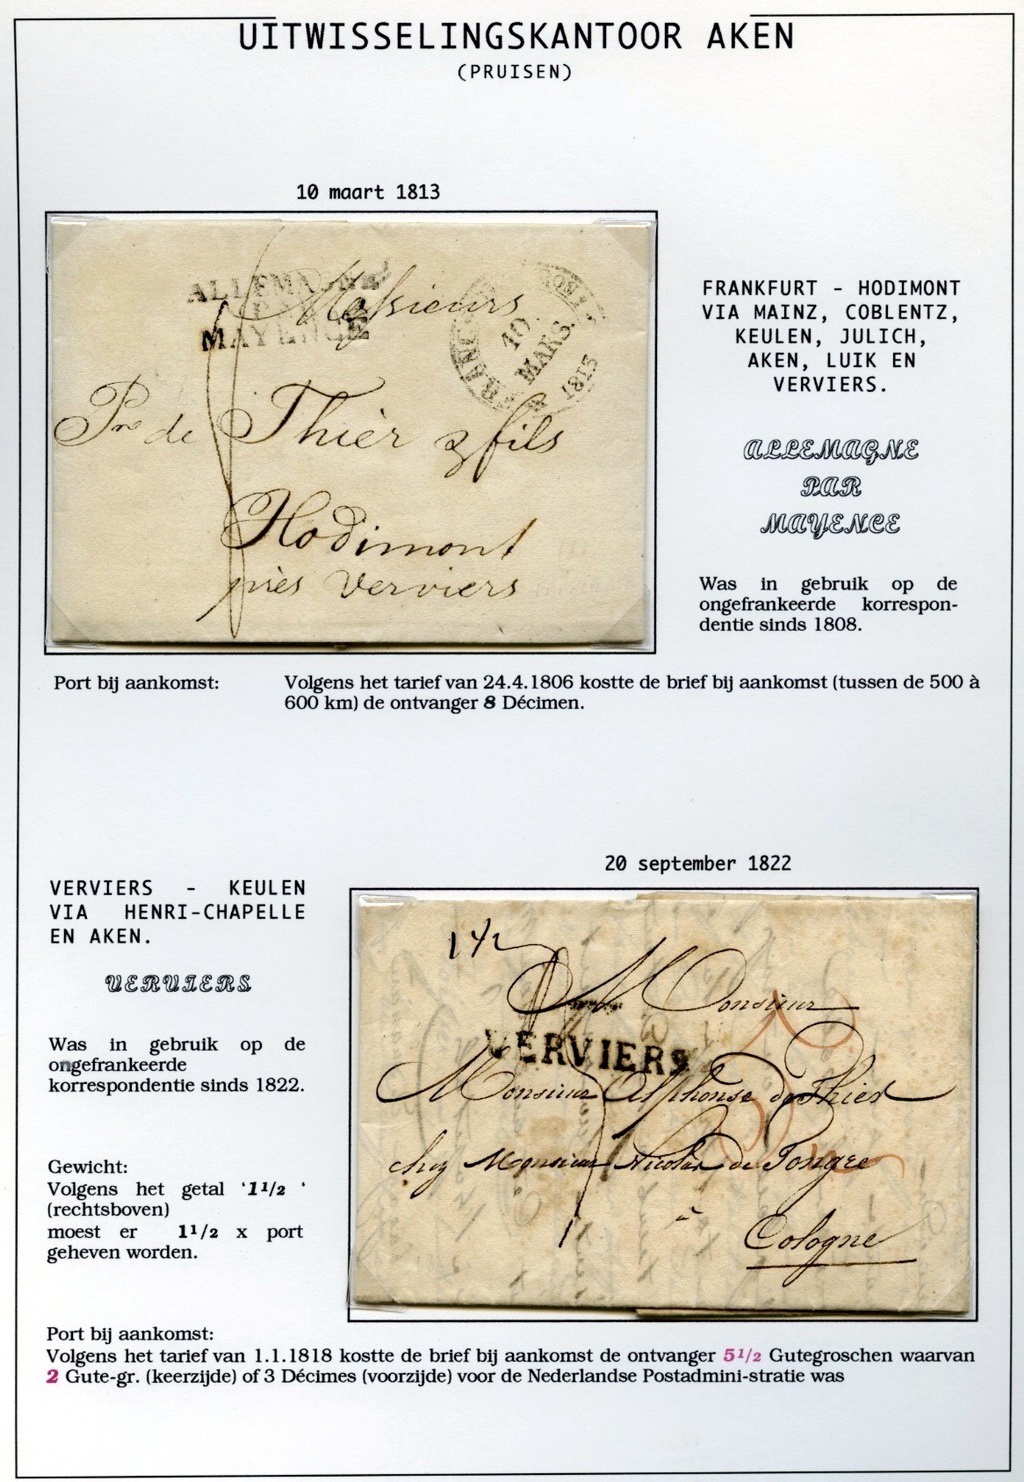 UITWISSELINGSKANTOOR AKEN
(PRUISEN)
10 maart 1813
ALLEMAGNE
MAYENCE
Messieurs
10
MARS.
1813
Pre de Thièr & fils
Hodimont
près Verviers
FRANKFURT - HODIMONT
VIA MAINZ, COBLENTZ,
KEULEN, JULICH,
AKEN, LUIK EN
VERVIERS.
ALLEMAGNE
PAR
MAYENCE
Was in gebruik op de
ongefrankeerde korrespon-
dentie sinds 1808.
Port bij aankomst:
Volgens het tarief van 24.4.1806 kostte de brief bij aankomst (tussen de 500 à
600 km) de ontvanger 8 Décimen.
20 september 1822
VERVIERS - KEULEN
VIA HENRI-CHAPELLE
EN AKEN.
VERVIERS
Was in gebruik op de
ongefrankeerde
korrespondentie sinds 1822.
Gewicht:
Volgens het getal '1½ '
(rechtsboven)
moest er 1½ x port
geheven worden.
1½
Monsieur
VERVIERS
Monsieur Alphonse de Thier
chez Monsieur Nicolas de Tongre
à
Cologne
Port bij aankomst:
Volgens het tarief van 1.1.1818 kostte de brief bij aankomst de ontvanger 5½ Gutegroschen waarvan
2 Gute-gr. (keerzijde) of 3 Décimes (voorzijde) voor de Nederlandse Postadmini-stratie was